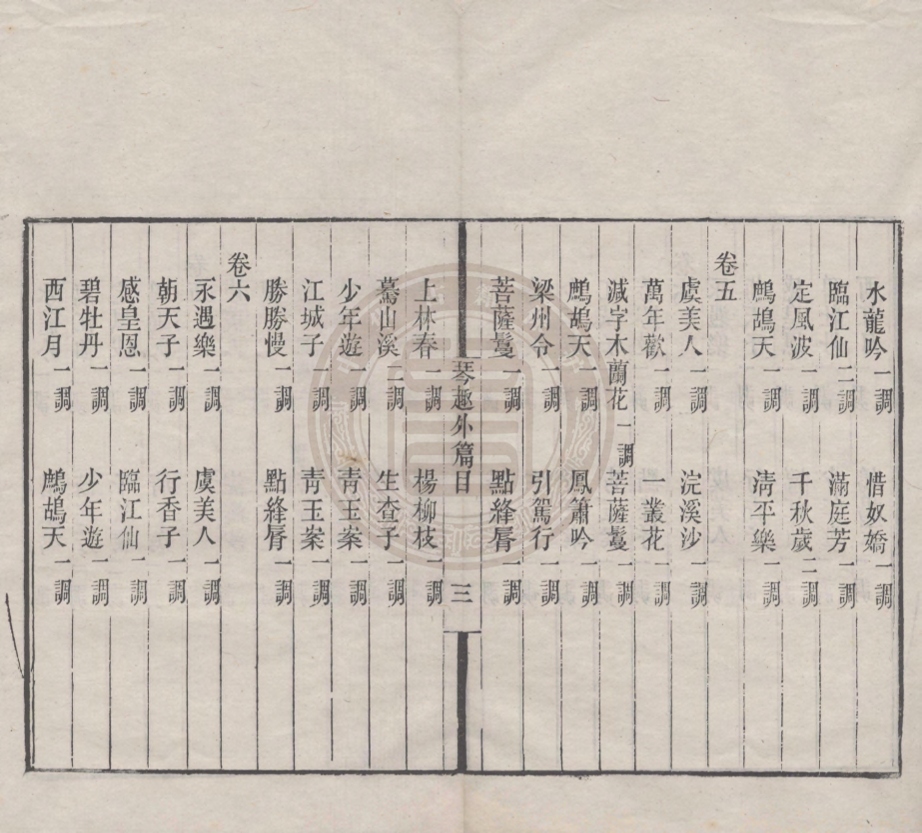 水龍吟一調 惜奴嬌一調
臨江仙二調 滿庭芳一調
定風波一調 千秋歲二調
鷓鴣天一調 淸平樂一調
卷五
虞美人一調 浣溪沙一調
萬年歡一調 一叢花一調
減字木蘭花一調 菩薩蔓一調
鷓鴣天一調 鳳簫吟一調
梁州令一調 引駕行一調
菩薩鬘一調 點絳脣一調
琴趣外篇目 三
上林春一調 楊柳枝一調
驀山溪二調 生查子一調
少年遊一調 靑玉案一調
江城子一調 靑玉案一調
勝勝慢一調 點絳脣一調
卷六
永遇樂一調 虞美人一調
朝天子一調 行香子一調
感皇恩一調 臨江仙一調
碧牡丹一調 少年遊一調
西江月一調 鷓鴣天一調